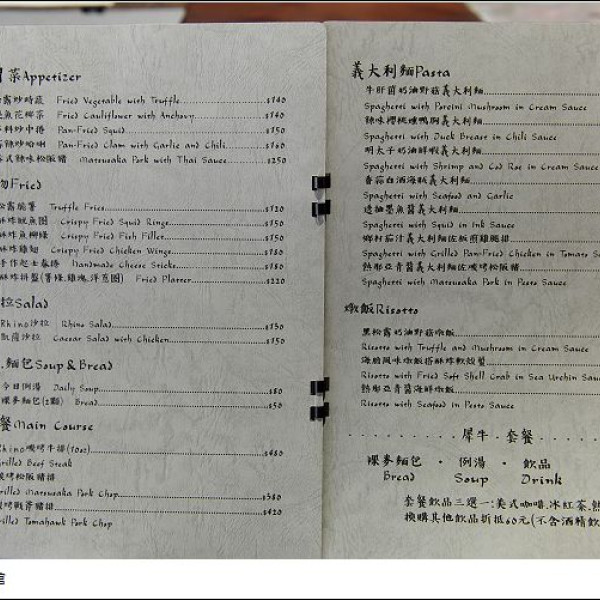 菜Appetizer
露炒時蔬 Fried Vegetable with Truffle $140
魚花椰菜 Fried Cauliflower with Anchovy $140
料炒中捲 Pan-Fried Squid $150
蒜辣炒蛤蜊 Pan-Fried Clam with Garlic and Chili $160
泰式辣味松阪豬 Matsusaka Pork with Thai Sauce $250
物Fried
松露脆薯 Truffle Fries $120
酥炸魷魚圈 Crispy Fried Squid Rings $150
酥炸魚柳條 Crispy Fried Fish Filler $150
酥炸雞翅 Crispy Fried Chicken Wings $180
手作起士春捲 Handmade Cheese Sticks $180
酥炸拼盤(薯條.雞塊.洋蔥圈) Fried Platter $220
拉Salad
Rhino沙拉 Rhino Salad $130
凱薩沙拉 Caesar Salad with Chicken $150
.麵包Soup & Bread
今日例湯 Daily Soup $80
裸麥麵包(2顆) Bread $50
餐Main Course
Rhino碳烤牛排(10oz) $480
Grilled Beef Steak
碳烤松阪豬排
Grilled Matsusaka Pork Chop $380
碳烤戰斧豬排 $420
Grilled Tomahawk Pork Chop
義大利麵Pasta
牛肝菌奶油野菇義大利麵
Spaghetti with Porcini Mushroom in Cream Sauce
辣味櫻桃燻鴨胸義大利麵
Spaghetti with Duck Breast in Chili Sauce
明太子奶油鮮蝦義大利麵
Spaghetti with Shrimp and Cod Roe in Cream Sauce
香蒜白酒海鮮義大利麵
Spaghetti with Seafood and Garlic
透抽墨魚醬義大利麵
Spaghetti with Squid in Ink Sauce
鄉村茄汁義大利麵佐板煎雞腿排
Spaghetti with Grilled Pan-Fried Chicken in Tomato Sa
熱那亞青醬義大利麵佐碳烤松阪豬
Spaghetti with Matsusaka Pork in Pesto Sauce
燉飯Risotto
黑松露奶油野菇燉飯
Risotto with Truffle and Mushroom in Cream Sauce
海膽風味燉飯搭酥炸軟殼蟹
Risotto with Fried Soft Shell Crab in Sea Urchin Sauce
熱那亞青醬海鮮燉飯
Risotto with Seafood in Pesto Sauce
犀牛.套餐
裸麥麵包 · 例湯 · 飲品
Bread Soup Drink
套餐飲品三選一:美式咖啡.冰紅茶.熱
換購其他飲品折抵60元(不含酒精飲